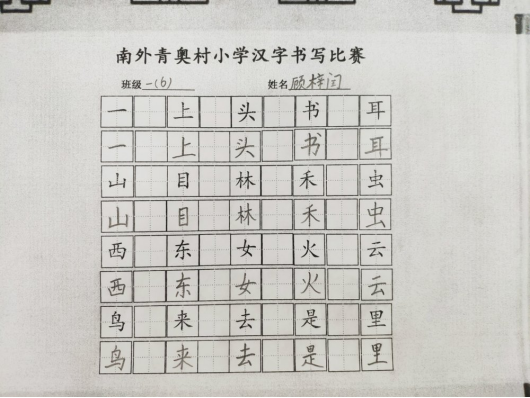 南外青奥村小学汉字书写比赛
班级 一(6) 姓名 顾梓闰
一 上 头 书 耳
一 上 头 书 耳
山 目 林 禾 虫
山 目 林 禾 虫
西 东 女 火 云
西 东 女 火 云
鸟 来 去 是 里
鸟 来 去 是 里